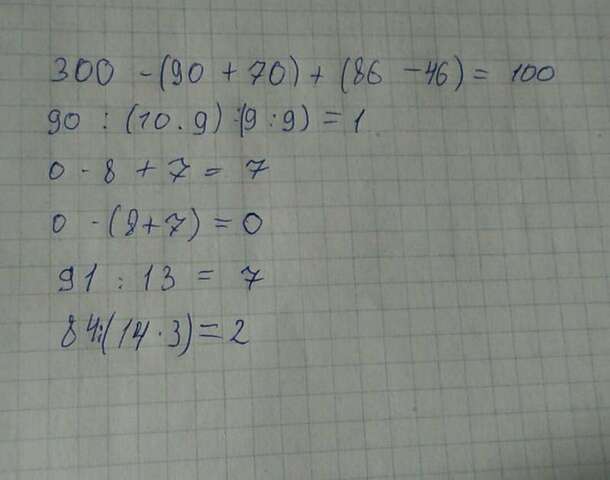 300 - (90 + 70) + (86 - 46) = 100
90 : (10 . 9) : (9 : 9) = 1
0 - 8 + 7 = 7
0 - (8+7) = 0
91 : 13 = 7
84:(14 . 3) = 2